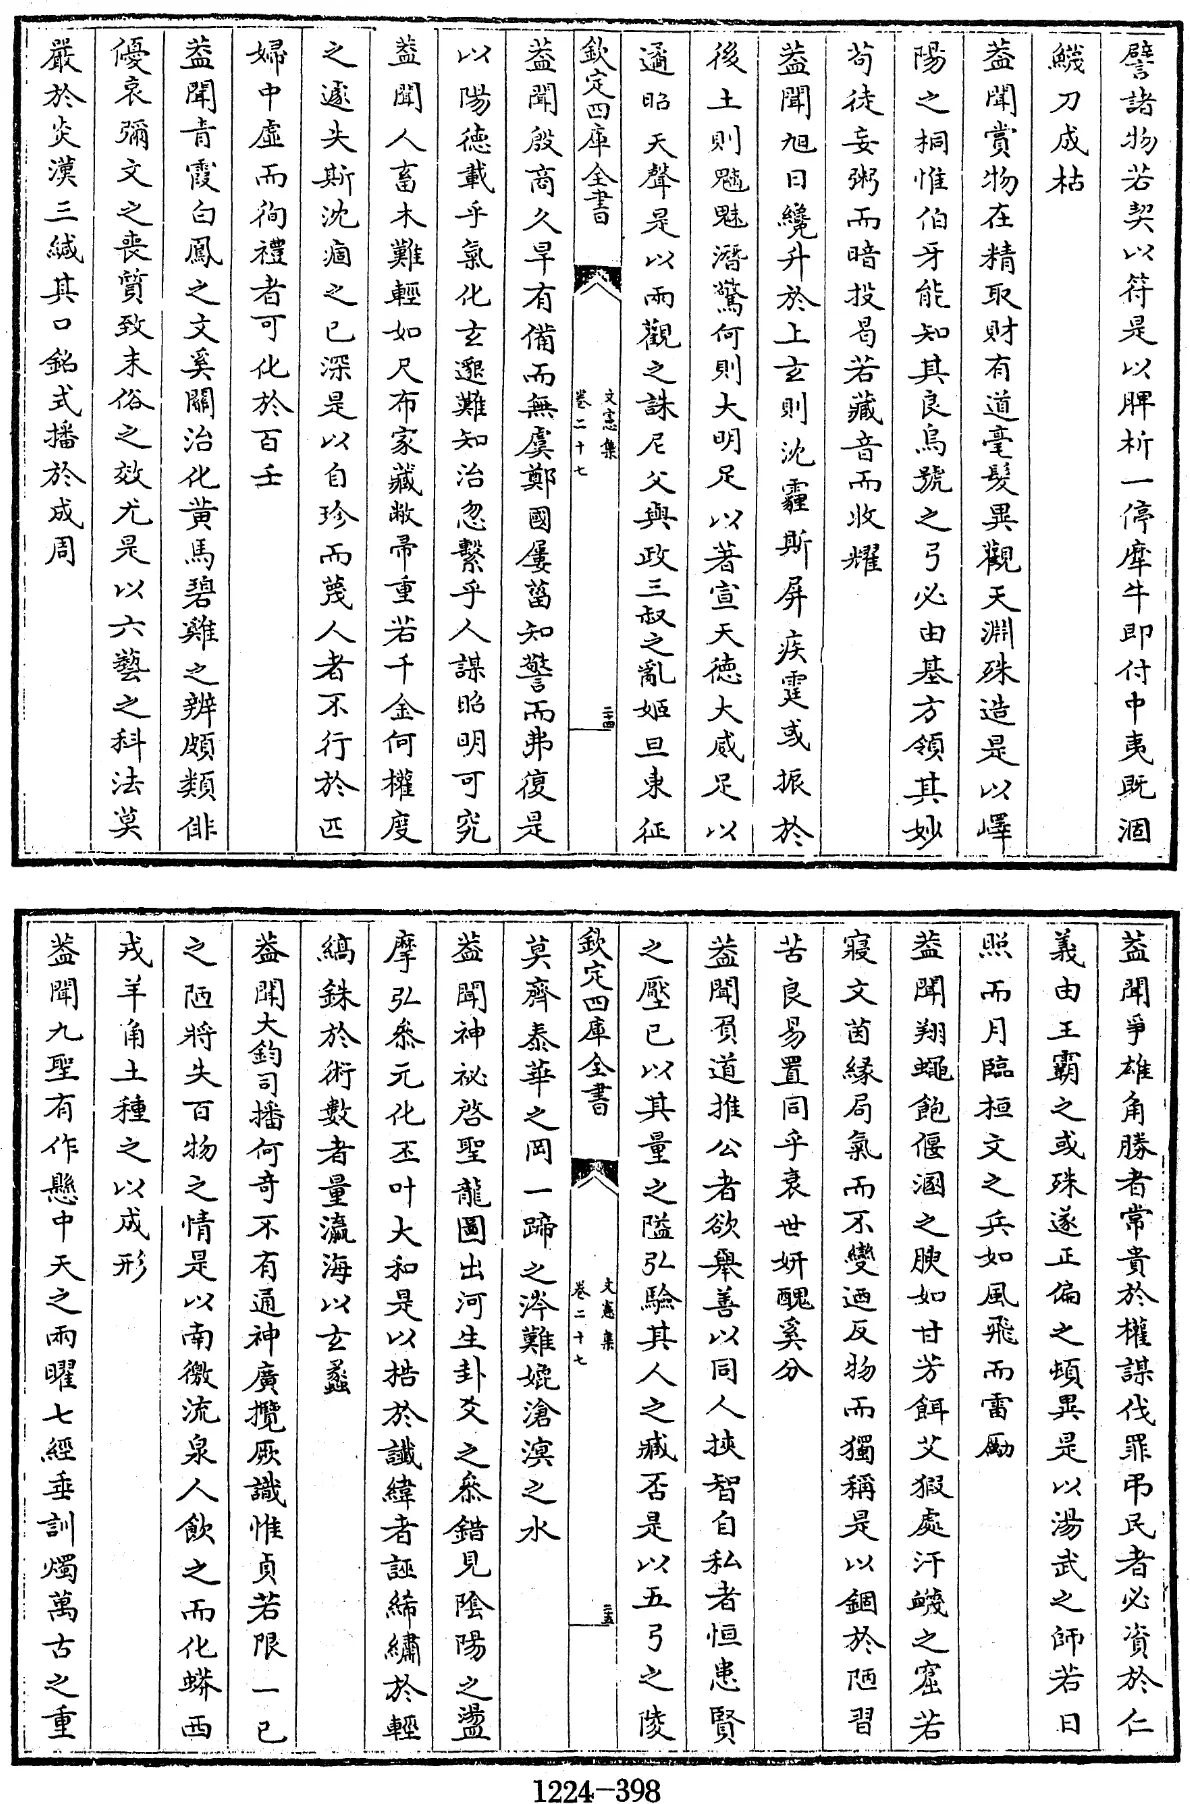 譬諸物若契以符是以脾析一停犀牛即付中夷既涸
鱥刀成枯
蓋聞賞物在精取財有道毫髮異觀天淵殊造是以嶧
陽之桐惟伯牙能知其良烏號之弓必由基方領其妙
茍徒妄粥而暗投曷若藏音而收耀
蓋聞旭日纔升於上玄則沈霾斯屏疾霆或振於
後土則魑魅潛驚何則大明足以著宣天德大威足以
遹昭天聲是以兩觀之誅尼父與政三叔之亂姬旦東征
欽定四庫全書
文憲集
卷二十七
二十四
蓋聞殷商久旱有備而無虞鄭國屢菑知警而弗復是
以陽德載乎氣化玄邈難知治忽繫乎人謀昭明可究
蓋聞人畜木難輕如尺布家藏敝帚重若千金何權度
之遽失斯沈痼之已深是以自珍而蔑人者不行於匹
婦中虛而徇禮者可化於百壬
蓋聞青霞白鳳之文奚關治化黃馬碧雞之辨頗類俳
優哀彌文之喪質致末俗之效尤是以六藝之科法莫
嚴於炎漢三緘其口銘式播於成周
蓋聞爭雄角勝者常貴於權謀伐罪弔民者必資於仁
義由王霸之或殊遂正偏之頓異是以湯武之師若日
照而月臨桓文之兵如風飛而雷勵
蓋聞翔蠅飽偃溷之腴如甘芳餌艾豭處汙穢之窟若
寢文茵緣局氣而不變迺反物而獨稱是以錮於陋習
苦良易置同乎衰世妍醜奚分
蓋聞負道推公者欲舉善以同人挾智自私者恒患賢
之壓已以其量之隘弘驗其人之臧否是以五弓之陵
欽定四庫全書
文憲集
卷二十七
二十五
莫齊泰華之岡一蹄之涔難媲滄溟之水
蓋聞神祕啓聖龍圖出河生卦爻之叅錯見陰陽之盪
摩弘叅元化丕叶大和是以梏於讖緯者誣絺繡於輕
縞銖於術數者量瀛海以玄蠡
蓋聞大鈞司播何奇不有通神廣攬厥識惟貞若限一已
之陋將失百物之情是以南徼流泉人飲之而化蟒西
戎羊角土種之以成形
蓋聞九聖有作懸中天之兩曜七經垂訓燭萬古之重
1224-398